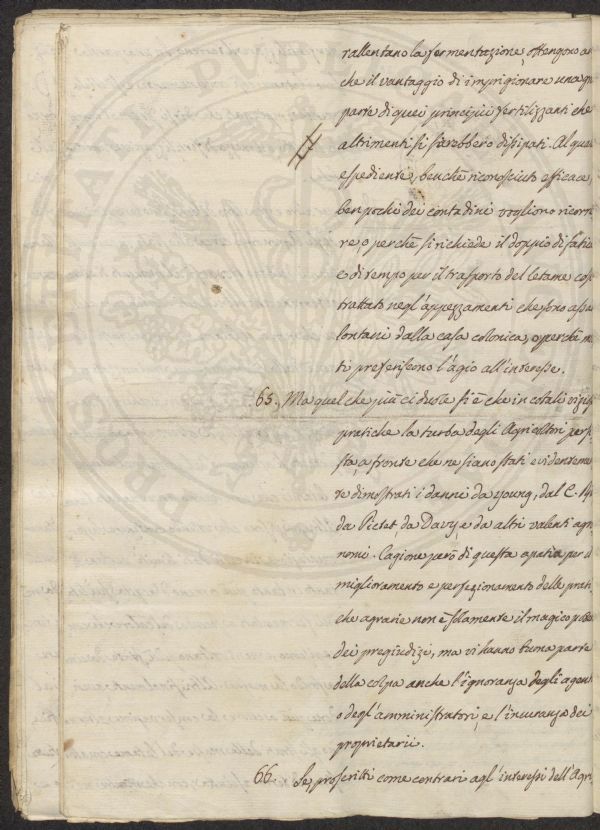 rallentano la fermentazione, ottengono an
che il vantaggio di imprigionare una gr
parte di quei principii fertilizzanti che
altrimenti si sarebbero dissipati. Al qua
espediente, benchè riconosciuto efficace,
ben pochi dei contadini vogliono ricorre
re, o perchè si richiede il doppio di fatic
e di tempo per il trasporto del letame cos
trattato negl'appezzamenti che sono assa
lontani dalla casa colonica, o perchè m
ti preferiscono l'agio all'interesse.
65. Ma quel che più ci duole si è che in cotali vizios
pratiche la turba degli Agricoltori persi
sta, a fronte che ne siano stati evidenteme
te dimostrati i danni da young, dal C.
da Pictet, da Davy, e da altri valenti agr
nomi. Cagione però di questa apatia per il
miglioramento e perfezionamento delle prati
che agrarie non è solamente il magico potere
dei pregiudizi, ma vi hanno buona parte
della colpa anche l'ignoranza degli agen
o degl'amministratori, e l'incuranza dei
proprietarii.
66. Se, proscritti come contrari agl'interessi dell'Agri